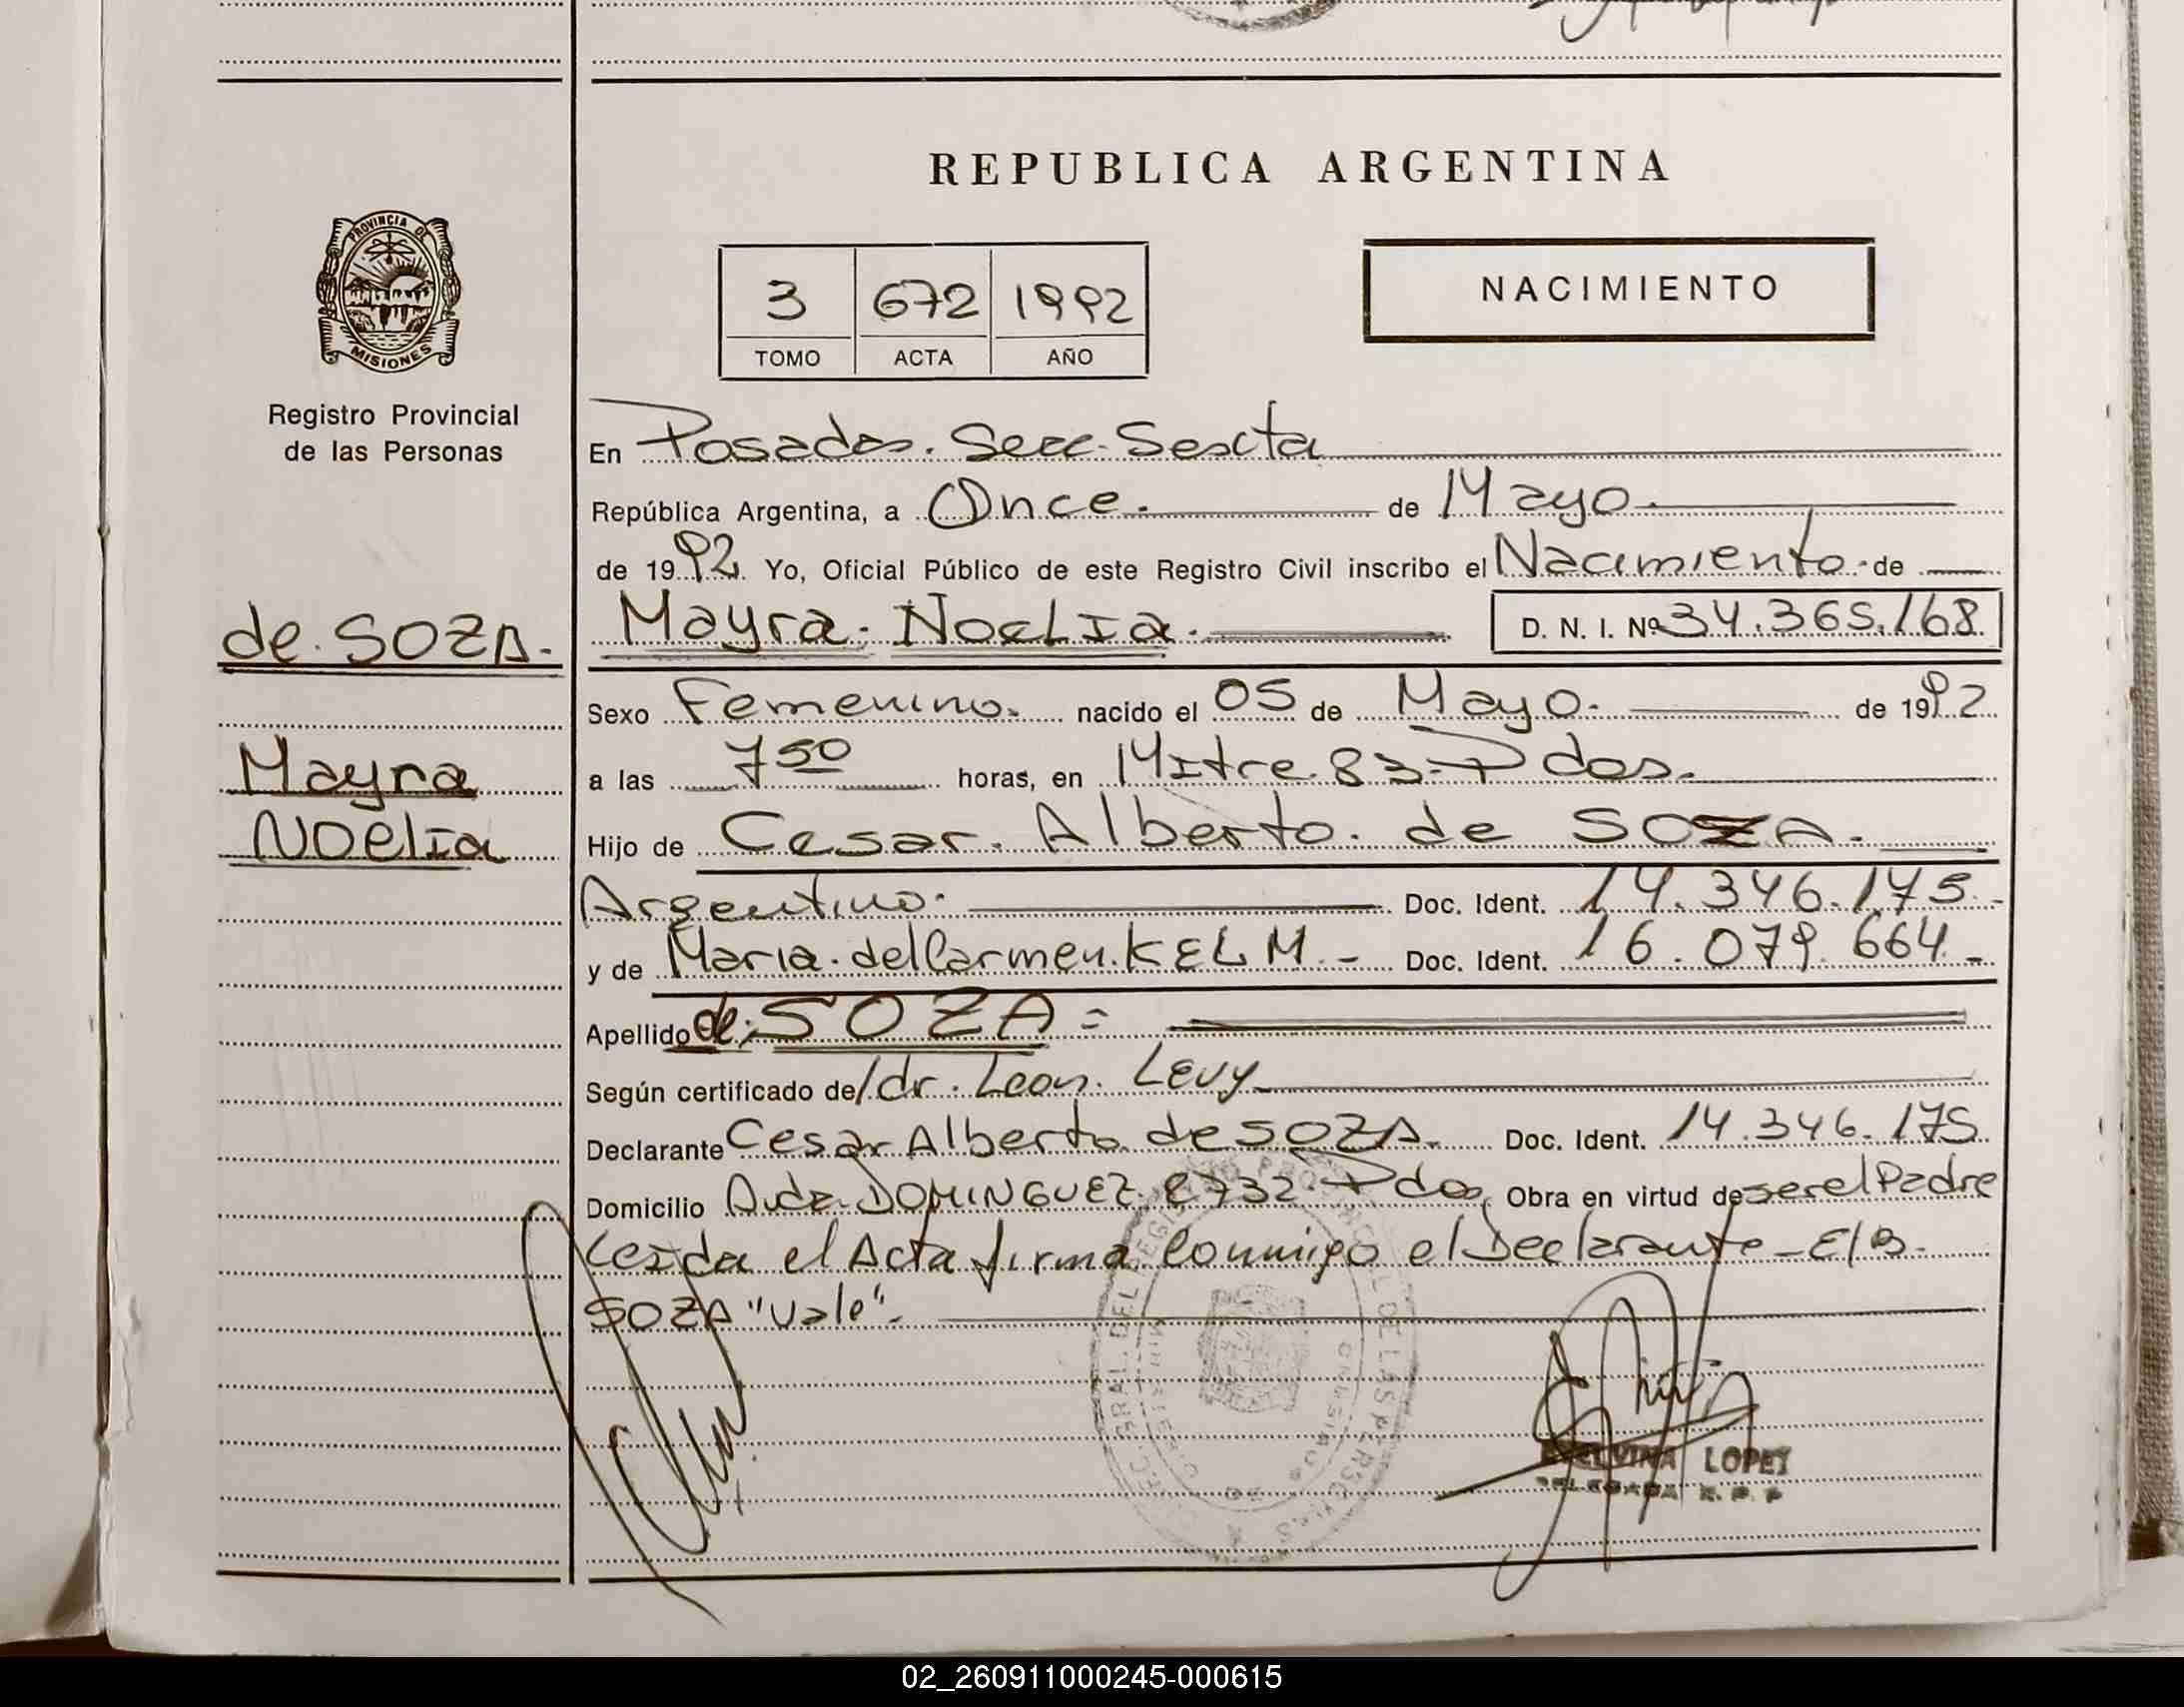 REPUBLICA ARGENTINA
PROVINCIA DE
MISIONES
Registro Provincial
de las Personas
3 672 1992
TOMO ACTA AÑO
NACIMIENTO
En Posadas. Secc. Sexta
República Argentina, a Once. de Mayo.
de 1992. Yo, Oficial Público de este Registro Civil inscribo el Nacimiento de
de SOZA.
Mayra Noelia. D. N. I. Nº 34.365.168
Sexo Femenino. nacido el 05 de Mayo. de 1992
Mayra
Noelia
a las 7 50 horas, en Mitre 83-Pdas.
Hijo de Cesar Alberto de SOZA.
Argentino. Doc. Ident. 14.346.175.-
y de Maria del Carmen KELM.- Doc. Ident. 16.079.664.-
Apellido de SOZA=
Según certificado de/dr. Leon Levy
Declarante Cesar Alberto de SOZA. Doc. Ident. 14.346.175
Domicilio Avda DOMINGUEZ 2732 Pdas, Obra en virtud de ser el Padre
Leida el Acta firma conmigo el Declarante-E/
SOZA "Vale".-
LOPEZ
DELEGADA R. P. P
02_260911000245-000615